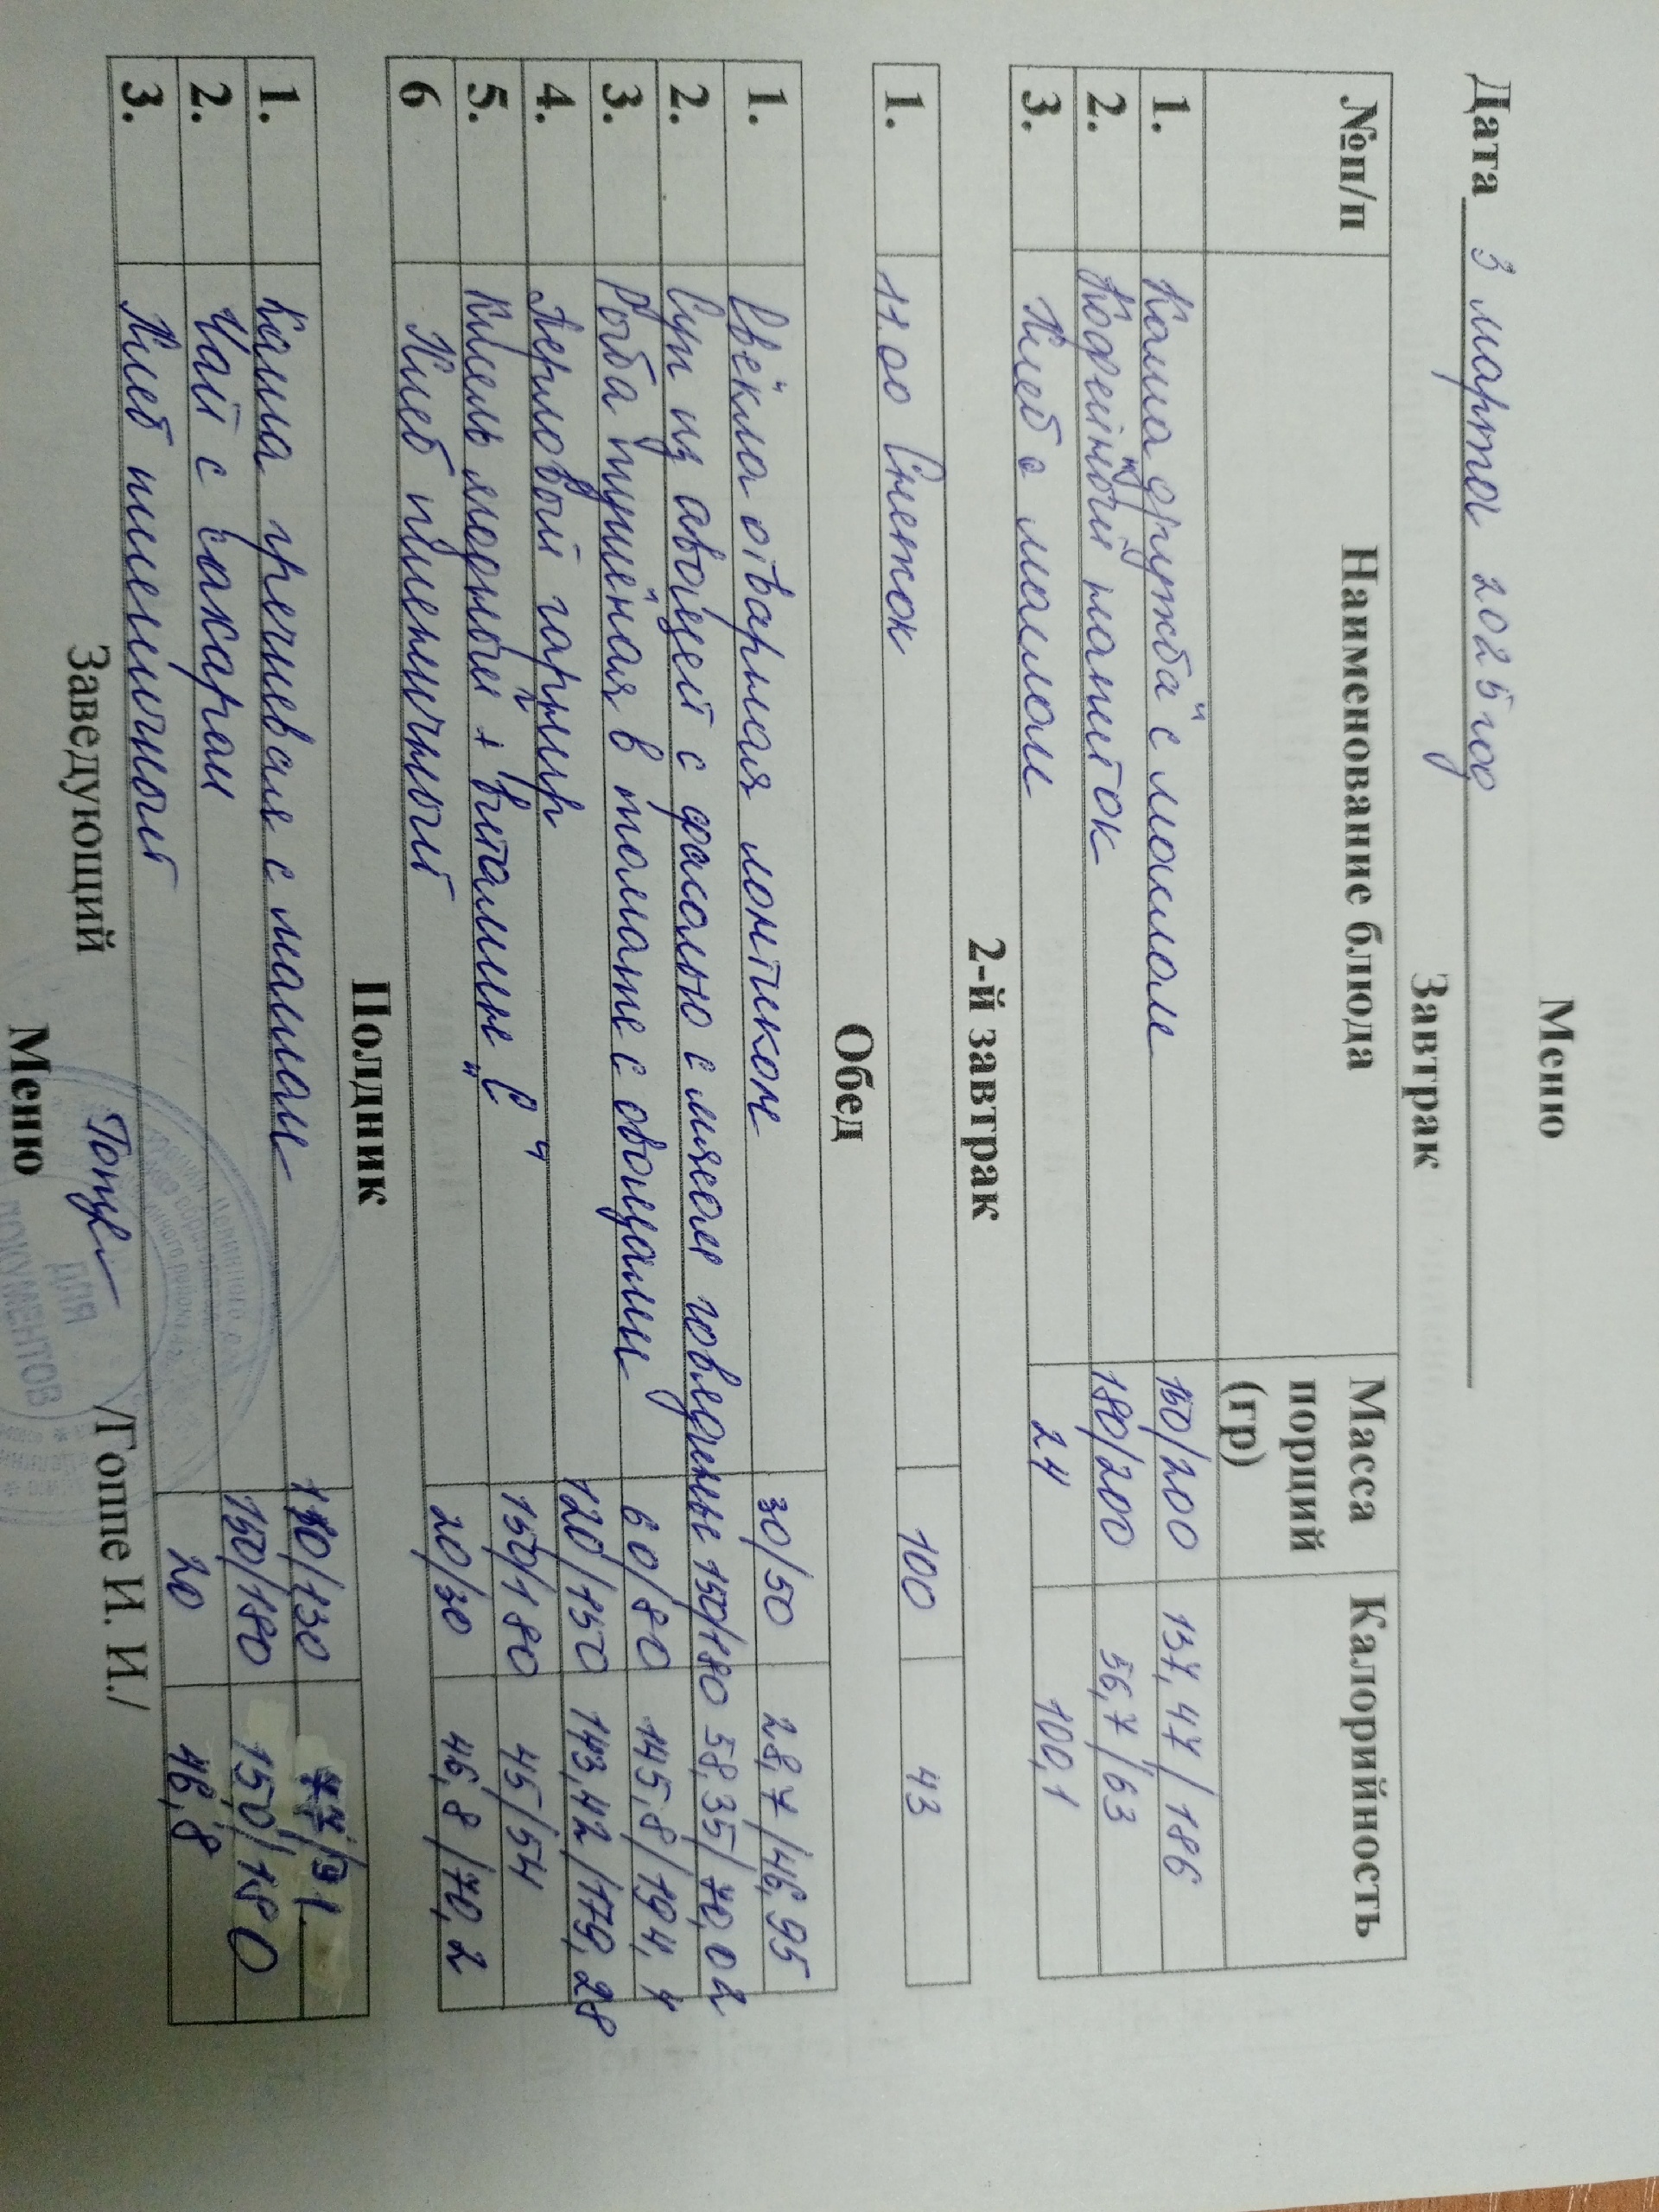 Меню
Дата 3 марта 2025 год
Завтрак
№п/п Наименование блюда Масса порций (гр) Калорийность
1. Каша „дружба“ с маслом 150/200 137,47/186
2. Кофейный напиток 180/200 56,7/63
3. Хлеб с маслом 24 100,1
2-й завтрак
1. 11.00 Снежок 100 43
Обед
1. Свёкла отварная ломтиком 30/50 28,7/46,95
2. Суп из овощей с фасолью с мясом говядины 150/180 58,35/70,02
3. Рыба тушёная в томате с овощами 60/80 145,8/194,4
4. Перловый гарнир 120/150 143,42/179,28
5. Кисель ягодный + витамин „С“ 150/180 45/54
6 Хлеб пшеничный 20/30 46,8/70,2
Полдник
1. Каша гречневая с маслом 110/130 77/91
2. Чай с сахаром 150/180 150/180
3. Хлеб пшеничный 20 46,8
Заведующий /Гоппе И. И./
ДЛЯ
ДОКУМЕНТОВ
Меню